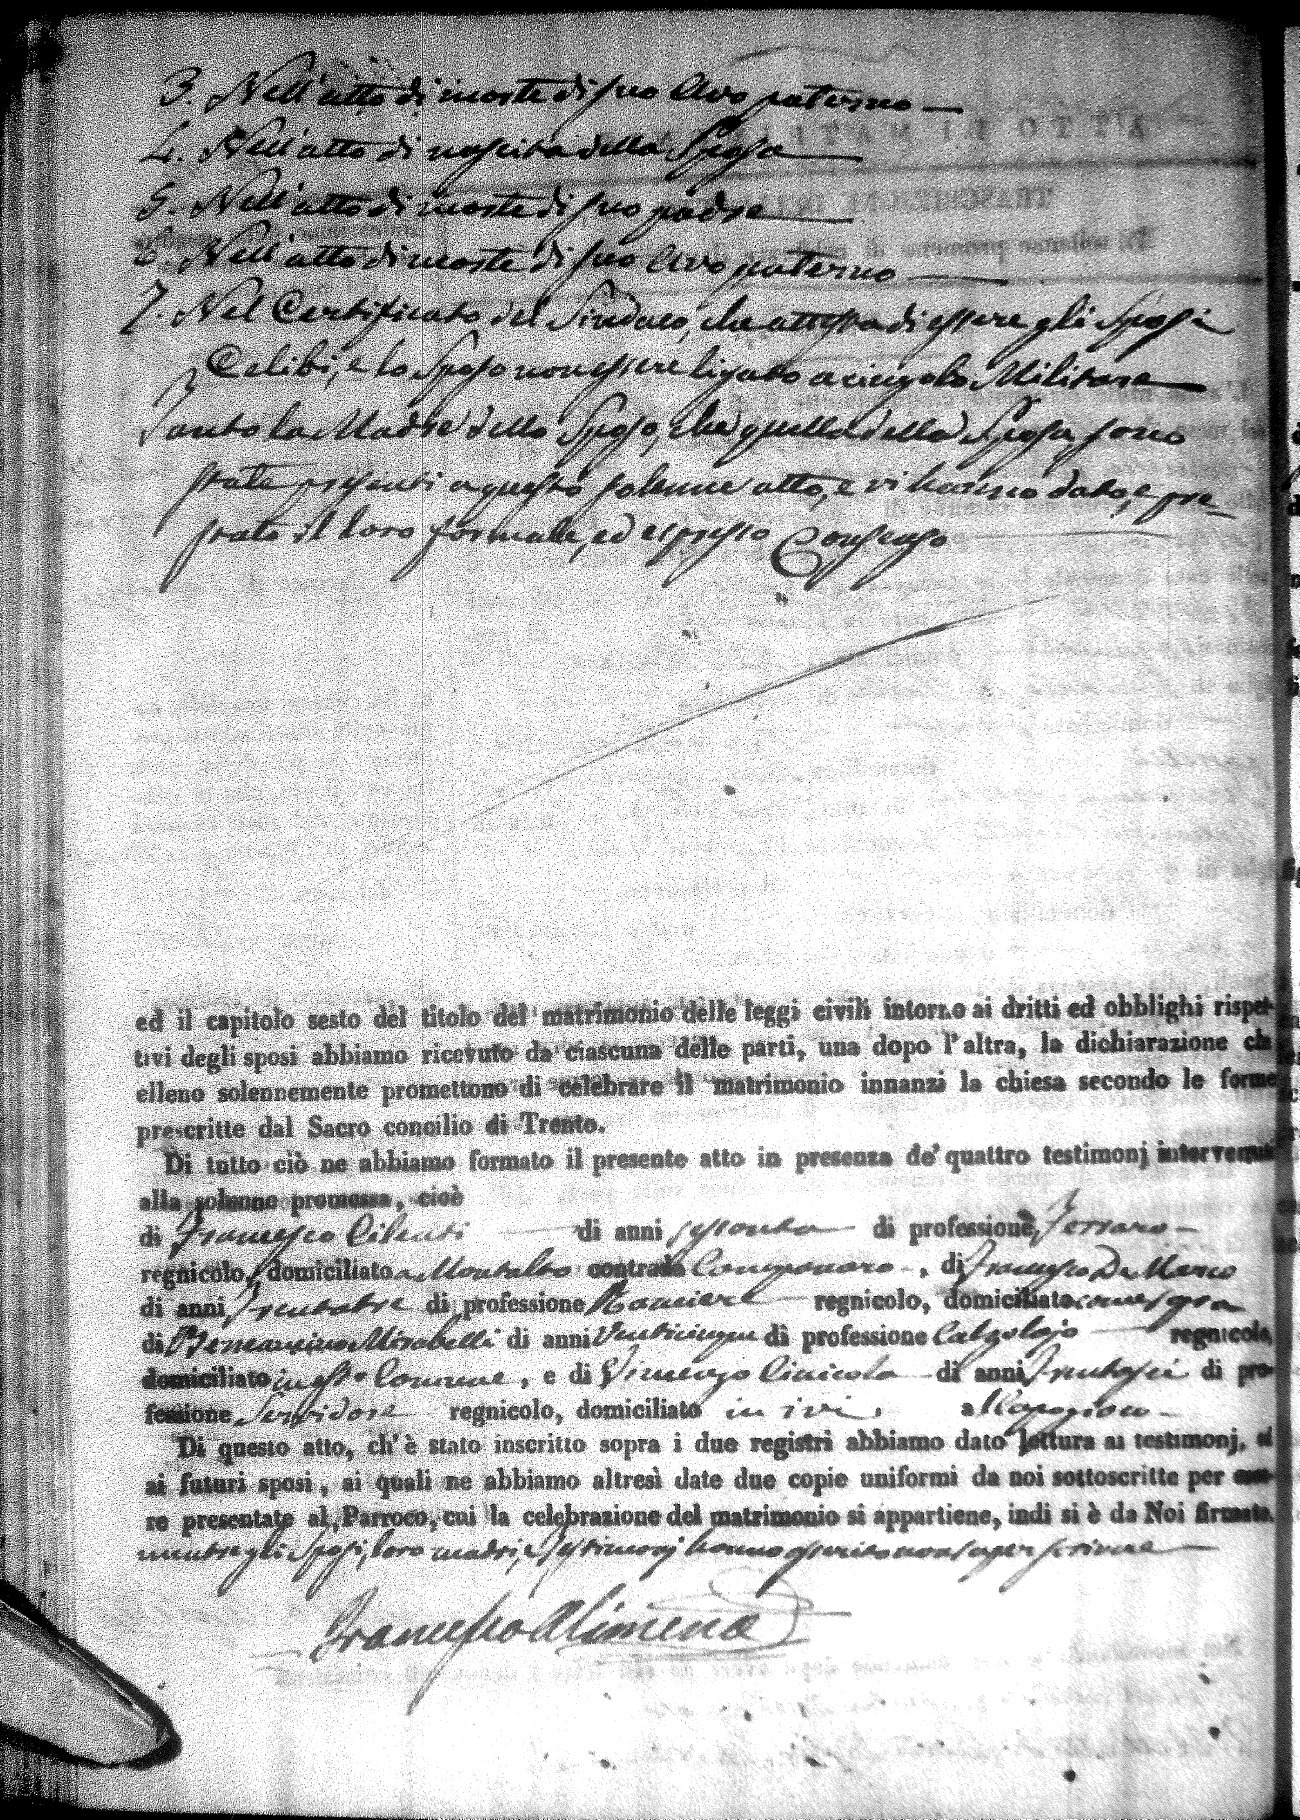 3. Nell'atto di morte di suo Avo paterno —
4. Nell'atto di nascita della Sposa —
5. Nell'atto di morte di suo padre —
6. Nell'atto di morte di suo Avo paterno —
7. Nel Certificato del Sindaco, che attesta di essere gli Sposi
Celibi, e lo Sposo non essere ligato a cingolo Militare
Tanto la Madre dello Sposo, che quella della Sposa sono
state presenti a questo solenne atto, e vi hanno dato, e pre-
stato il loro formale, ed espresso Consenso
ed il capitolo sesto del titolo del matrimonio delle leggi civili intorno ai dritti ed obblighi rispet-
tivi degli sposi abbiamo ricevuto da ciascuna delle parti, una dopo l'altra, la dichiarazione che
elleno solennemente promettono di celebrare il matrimonio innanzi la chiesa secondo le forme
prescritte dal Sacro concilio di Trento.
Di tutto ciò ne abbiamo formato il presente atto in presenza de' quattro testimonj intervenuti
alla solenne promessa, cioè
di Francesco Cilenti — di anni sessanta — di professione Ferraro —
regnicolo, domiciliato a Montalto contrada — , di Francesco De Marco
di anni Trentatre di professione — regnicolo, domiciliato come sopra
di Bernardino Mirabelli di anni Venticinque di professione Calzolajo — regnicolo,
domiciliato in esso Comune, e di Vincenzo — di anni Trentasei di pro-
fessione Servidore regnicolo, domiciliato in ivi, a
Di questo atto, ch'è stato inscritto sopra i due registri abbiamo dato lettura ai testimonj, ed
ai futuri sposi, ai quali ne abbiamo altresì date due copie uniformi da noi sottoscritte per esse-
re presentate al Parroco, cui la celebrazione del matrimonio si appartiene, indi si è da Noi firmato,
mentre gli Sposi, loro madri, e Testimonj hanno asserito non saper scrivere —
Francesco Alimena